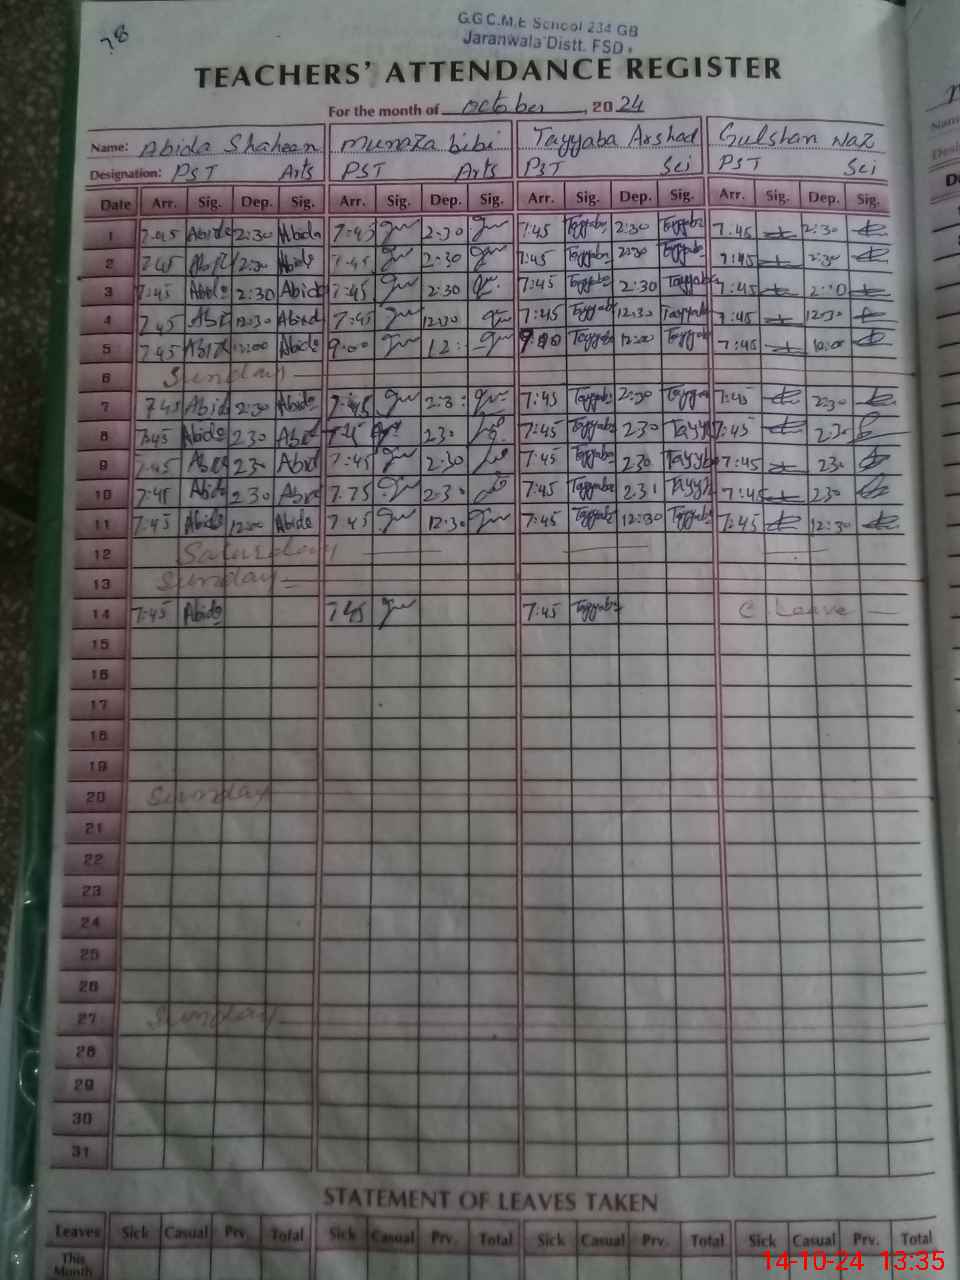 78
G.G.C.M.E School 234 GB
Jaranwala Distt. FSD.
TEACHERS' ATTENDANCE REGISTER
For the month of october, 2024
Name: Abida Shaheen Munaza bibi Tayyaba Arshad Gulshan Naz
Designation: PST Arts PST Arts PST Sci PST Sci
Date Arr. Sig. Dep. Sig. Arr. Sig. Dep. Sig. Arr. Sig. Dep. Sig. Arr. Sig. Dep. Sig.
1 7:45 Abida 2:30 Abida 7:45 2:30 7:45 Tayyaba 2:30 Tayyaba 7:45 2:30
2 7:45 Abida 2:30 Abida 7:45 2:30 7:45 Tayyaba 2:30 Tayyaba 7:45 2:30
3 7:45 Abida 2:30 Abida 7:45 2:30 7:45 Tayyaba 2:30 Tayyaba 7:45 2:30
4 7:45 12:30 Abida 7:45 12:30 7:45 Tayyaba 12:30 Tayyaba 7:45 12:30
5 7:45 Abida 12:00 Abida 9:00 12: Tayyaba 12:00 Tayyaba 7:45
6 Sunday
7 7:45 Abida 2:30 Abida 7:45 2:3 7:45 Tayyaba 2:30 Tayyaba 7:45 2:30
8 7:45 Abida 2:30 2:30 7:45 Tayyaba 2:30 Tayy 7:45 2:30
9 7:45 2:30 7:45 2:30 7:45 Tayyaba 2:30 Tayyab 7:45 2:30
10 7:45 Abida 2:30 7:75 2:30 7:45 Tayyaba 2:31 7:45 2:30
11 7:45 Abida 12:00 Abida 7:45 12:30 7:45 Tayyaba 12:30 Tayyaba 7:45 12:30
12 Saturday
13 Sunday
14 7:45 Abida 7:45 7:45 Tayyaba C Leave
15
16
17
18
19
20 Sunday
21
22
23
24
25
26
27 Sunday
28
29
30
31
STATEMENT OF LEAVES TAKEN
Leaves Sick Casual Prv. Total Sick Casual Prv. Total Sick Casual Prv. Total Sick Casual Prv. Total
This Month
14-10-24 13:35